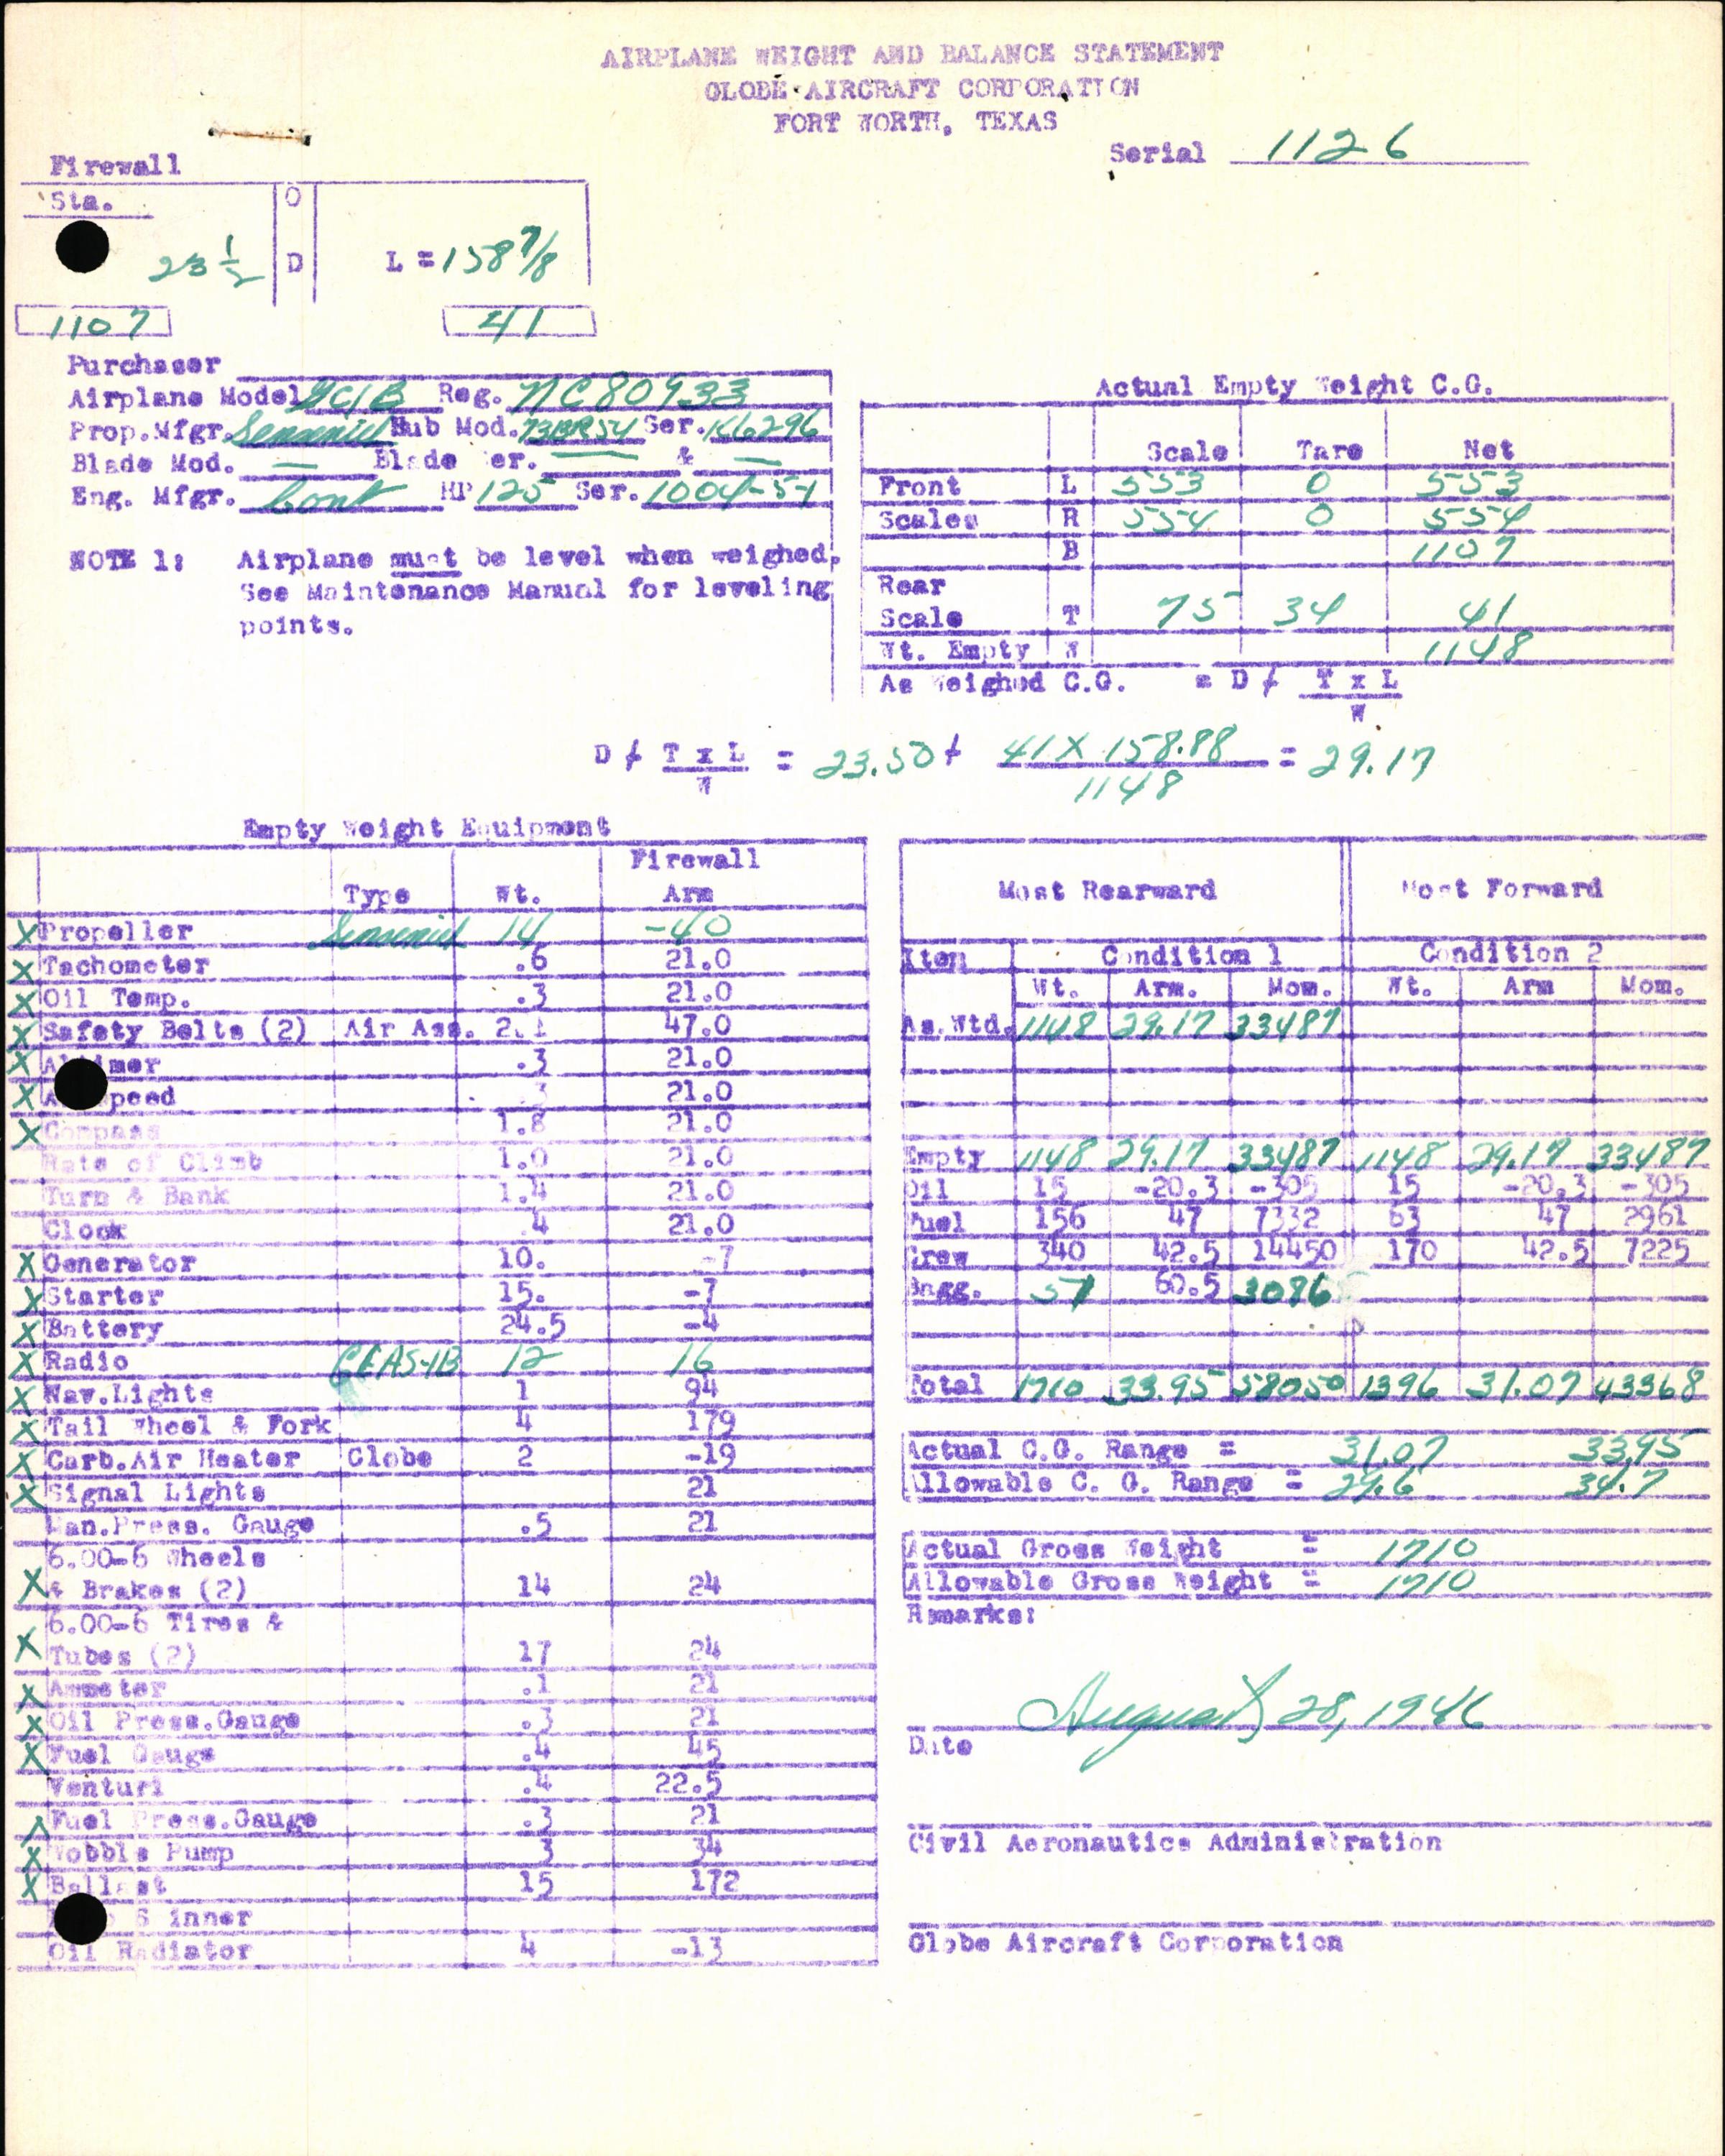 AIRPLANE WEIGHT AND BALANCE STATEMENT
GLOBE AIRCRAFT CORPORATION
FORT WORTH, TEXAS
Serial 1126
Firewall
Sta. O
23 1/2 D L = 158 7/8
1107 41
Purchaser
Airplane Model GC1B Reg. NC80933
Prop.Mfgr. Sensenich Hub Mod. 73BR54 Ser. K6296
Blade Mod. — Blade Ser. — & —
Eng. Mfgr. Cont HP 125 Ser.
NOTE 1: Airplane must be level when weighed.
See Maintenance Manual for leveling
points.
Actual Empty Weight C.G.
Scale Tare Net
Front L 553 0 553
Scales R 554 0 554
B 1107
Rear
Scale T 75 34 41
Wt. Empty W 1148
As Weighed C.G. = D + T x L
W
D + T x L = 23.50 + 41 X 158.88 = 29.17
W 1148
Empty Weight Equipment
Firewall
Type Wt. Arm
X Propeller Sensenich 14 -40
X Tachometer .6 21.0
X Oil Temp. .3 21.0
X Safety Belts (2) Air Ass. 2.1 47.0
X Al imer .3 21.0
X A speed 3 21.0
X Compass 1.8 21.0
Rate of Climb 1.0 21.0
Turn & Bank 1.4 21.0
Clock .4 21.0
X Generator 10. -7
X Starter 15. -7
X Battery 24.5 -4
X Radio 12 16
X Nav.Lights 1 94
X Tail Wheel & Fork 4 179
X Carb.Air Heater Globe 2 -19
X Signal Lights 21
Man.Press. Gauge .5 21
6.00-6 Wheels
X & Brakes (2) 14 24
6.00-6 Tires &
X Tubes (2) 17 24
X Ammeter .1 21
X Oil Press.Gauge .3 21
X Fuel Gauge .4 45
Venturi .4 22.5
X Fuel Press.Gauge .3 21
X Wobble Pump 3 34
X Ballast 15 172
S inner
Oil Radiator 4 -13
Most Rearward Most Forward
Item Condition 1 Condition 2
Wt. Arm. Mom. Wt. Arm Mom.
As.Wtd. 1148 29.17 33487
Empty 1148 29.17 33487 1148 29.17 33487
Oil 15 -20.3 -305 15 -20.3 -305
Fuel 156 47 7332 63 47 2961
Crew 340 42.5 14450 170 42.5 7225
Bagg. 51 60.5 3086
Total 1710 33.95 58050 1396 31.07 43368
Actual C.G. Range = 31.07 33.95
Allowable C. G. Range = 29.6 34.7
Actual Gross Weight = 1710
Allowable Gross Weight = 1710
Remarks:
August 28, 1946
Date
Civil Aeronautics Administration
Globe Aircraft Corporation